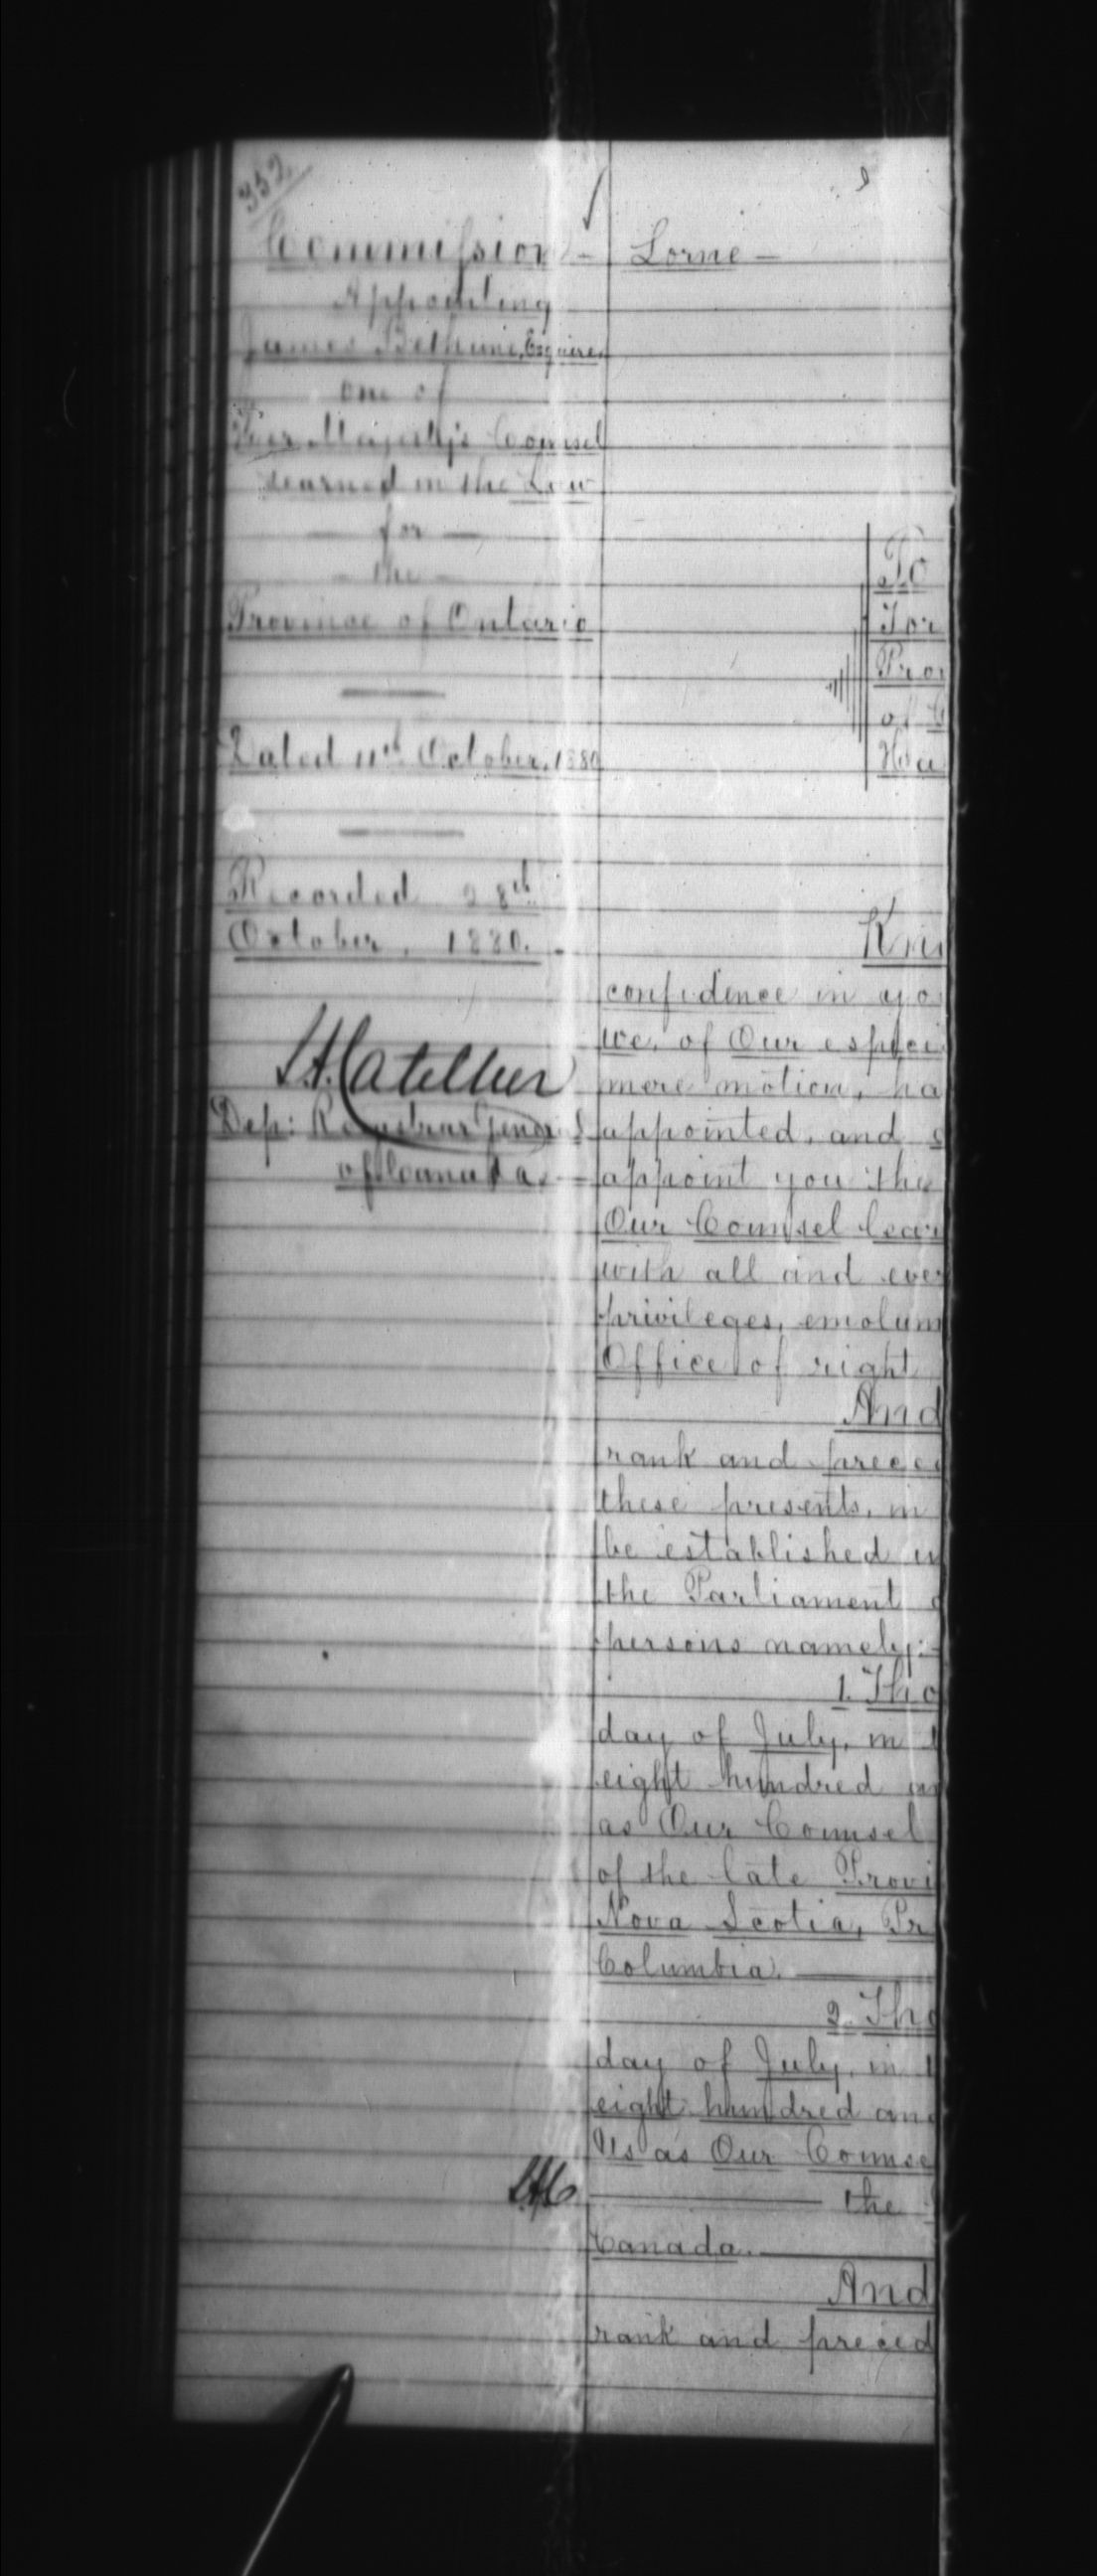 352
Commission -
Appointing
James Bethune, Esquire,
one of
Her Majesty's Counsel
learned in the Law
— for —
- the -
Province of Ontario
Dated 11th October, 1880
Recorded 28th
October, 1880.
L.A. Catellier
Dep: Registrar General
of Canada. —
Lorne —
To
Tor
Pro
of
Ha
Kn
confidence in yo
we, of Our especi
mere motion, ha
appointed, and
appoint you the
Our Counsel lear
with all and ever
privileges, emolum
Office of right
And
rank and preced
these presents, in
be established
the Parliament
persons namely:-
1. Tho
day of July, in
eight hundred an
as Our Counsel
of the late Provi
Nova Scotia, Pr
Columbia. —
2. Tho
day of July, in
eight hundred and
Us as Our Counse
— the
Canada. —
And
rank and preced
LAC